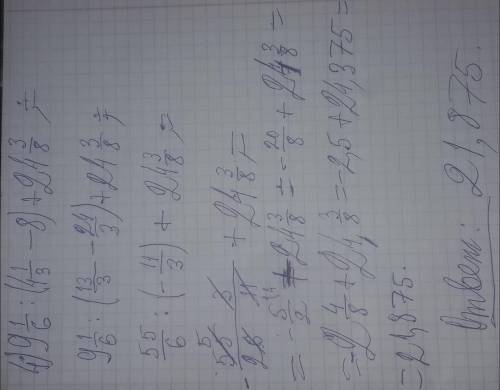 4) 9 1/6 : (4 1/3 - 8) + 24 3/8 =
9 1/6 : (13/3 - 24/3) + 24 3/8 =
55/6 : (- 11/3) + 24 3/8 =
- 55 · 3 / 2 · 11 + 24 3/8 =
= - 5/2 + 24 3/8 = - 20/8 + 24 3/8 =
= - 2 4/8 + 24 3/8 = - 2,5 + 24,375 =
= 21,875.
Ответ: 21,875.